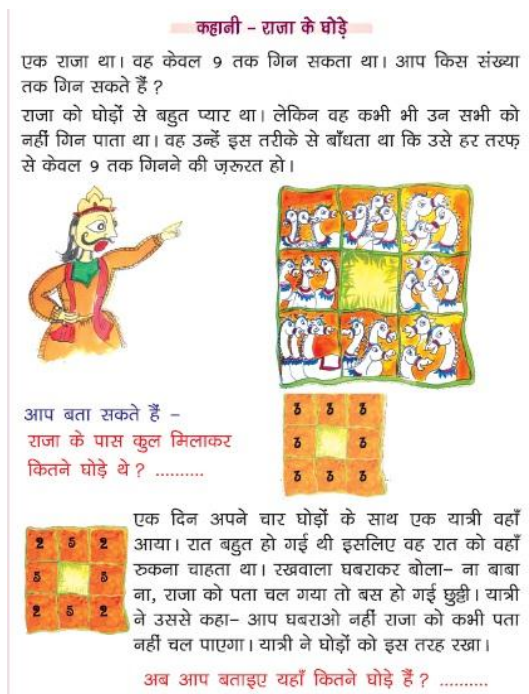 कहानी – राजा के घोड़े
एक राजा था। वह केवल 9 तक गिन सकता था। आप किस संख्या
तक गिन सकते हैं ?
राजा को घोड़ों से बहुत प्यार था। लेकिन वह कभी भी उन सभी को
नहीं गिन पाता था। वह उन्हें इस तरीके से बाँधता था कि उसे हर तरफ़
से केवल 9 तक गिनने की ज़रूरत हो।
आप बता सकते हैं –
राजा के पास कुल मिलाकर
कितने घोड़े थे ? ..........
3 3 3
3 3
3 3 3
एक दिन अपने चार घोड़ों के साथ एक यात्री वहाँ
आया। रात बहुत हो गई थी इसलिए वह रात को वहाँ
रुकना चाहता था। रखवाला घबराकर बोला– ना बाबा
ना, राजा को पता चल गया तो बस हो गई छुट्टी। यात्री
ने उससे कहा– आप घबराओ नहीं राजा को कभी पता
नहीं चल पाएगा। यात्री ने घोड़ों को इस तरह रखा।
2 5 2
5 5
2 5 2
अब आप बताइए यहाँ कितने घोड़े हैं ? ..........